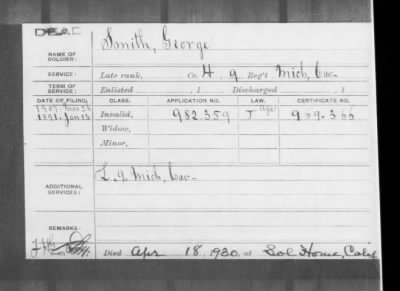 DEAD
NAME OF SOLDIER: Smith, George
SERVICE: Late rank, Co. H, 9 Reg't Mich, Cav-
TERM OF SERVICE: Enlisted , 1 Discharged , 1
DATE OF FILING. CLASS. APPLICATION NO. LAW. CERTIFICATE NO.
1907.
1891, Jan 13 Invalid, 982.359 J 969.366
Age
Widow,
Minor,
ADDITIONAL SERVICES: L. 9 Mich, Cav-
REMARKS:
Died Apr 18, 1930, at Sol Home, Calif